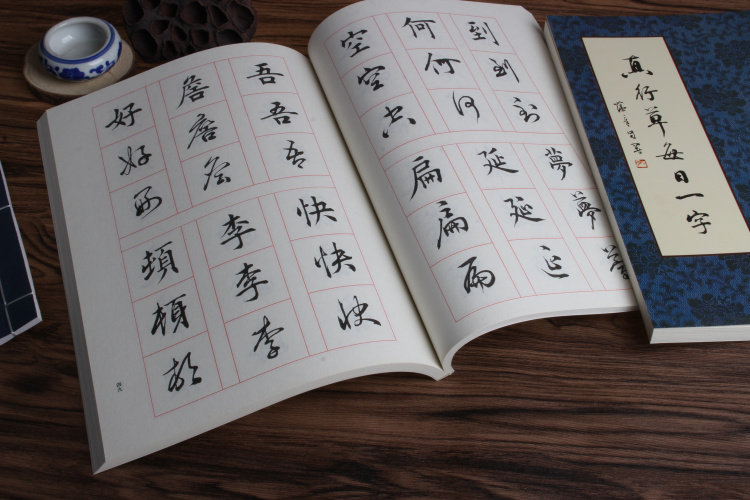 到到到
何何何
空空空
夢夢夢
延延延
扁扁扁
吾吾吾
詹詹詹
好好好
快快快
李李李
頓頓頓
真行草每日一字